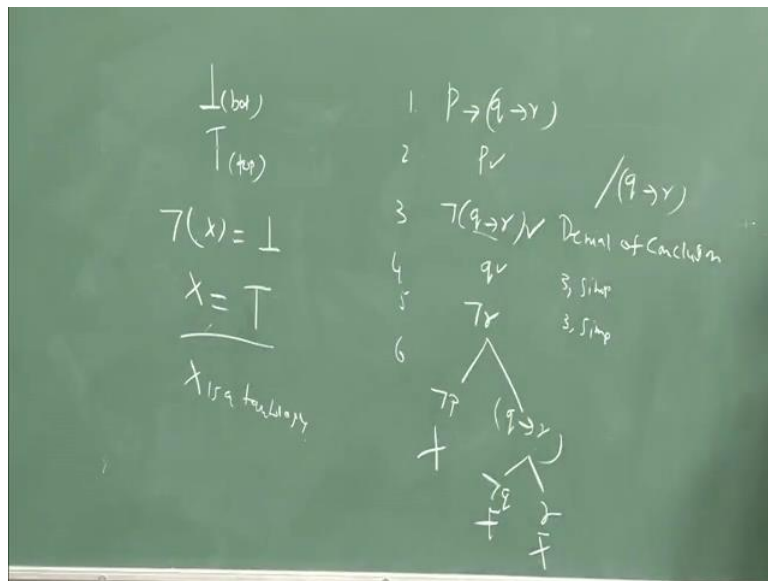 ⊥(bot)
T(top)
¬(X) = ⊥
X = T
X is a tautology
1. P → (q → r)
2 P✓
/(q → r)
3 ¬(q → r)✓ Denial of Conclusion
4 q✓ 3, Simp
5 ¬r 3, Simp
6
¬P (q → r)
+
¬q r
+ +